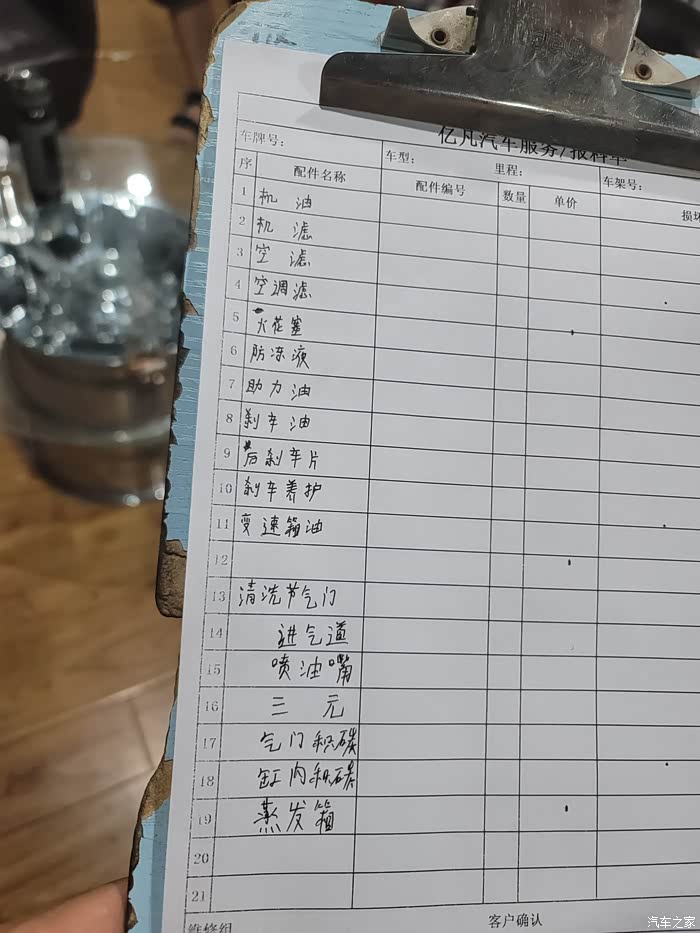 亿凡汽车服务/报料单
车牌号: 车型: 里程: 车架号:
序 配件名称 配件编号 数量 单价
1 机油
2 机滤
3 空滤
4 空调滤
5 火花塞
6 防冻液
7 助力油
8 刹车油
9 后刹车片
10 刹车养护
11 变速箱油
12
13 清洗节气门
14 进气道
15 喷油嘴
16 三元
17 气门积碳
18 缸内积碳
19 蒸发箱
20
21
维修组 客户确认
汽车之家